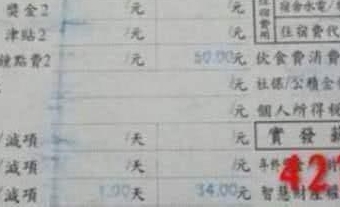 獎金2 /元 /元 宿舍水電/
津貼2 /元 /元 住宿費代
鐘點費2 /元 50.00元 伙食費消費
/元 /元 社保/公積金
/元 /元 個人所得稅
/減項 /天 /元 實發薪
/減項 /天 /元 年終
/減項 1.00天 34.00元 智慧財產權
42